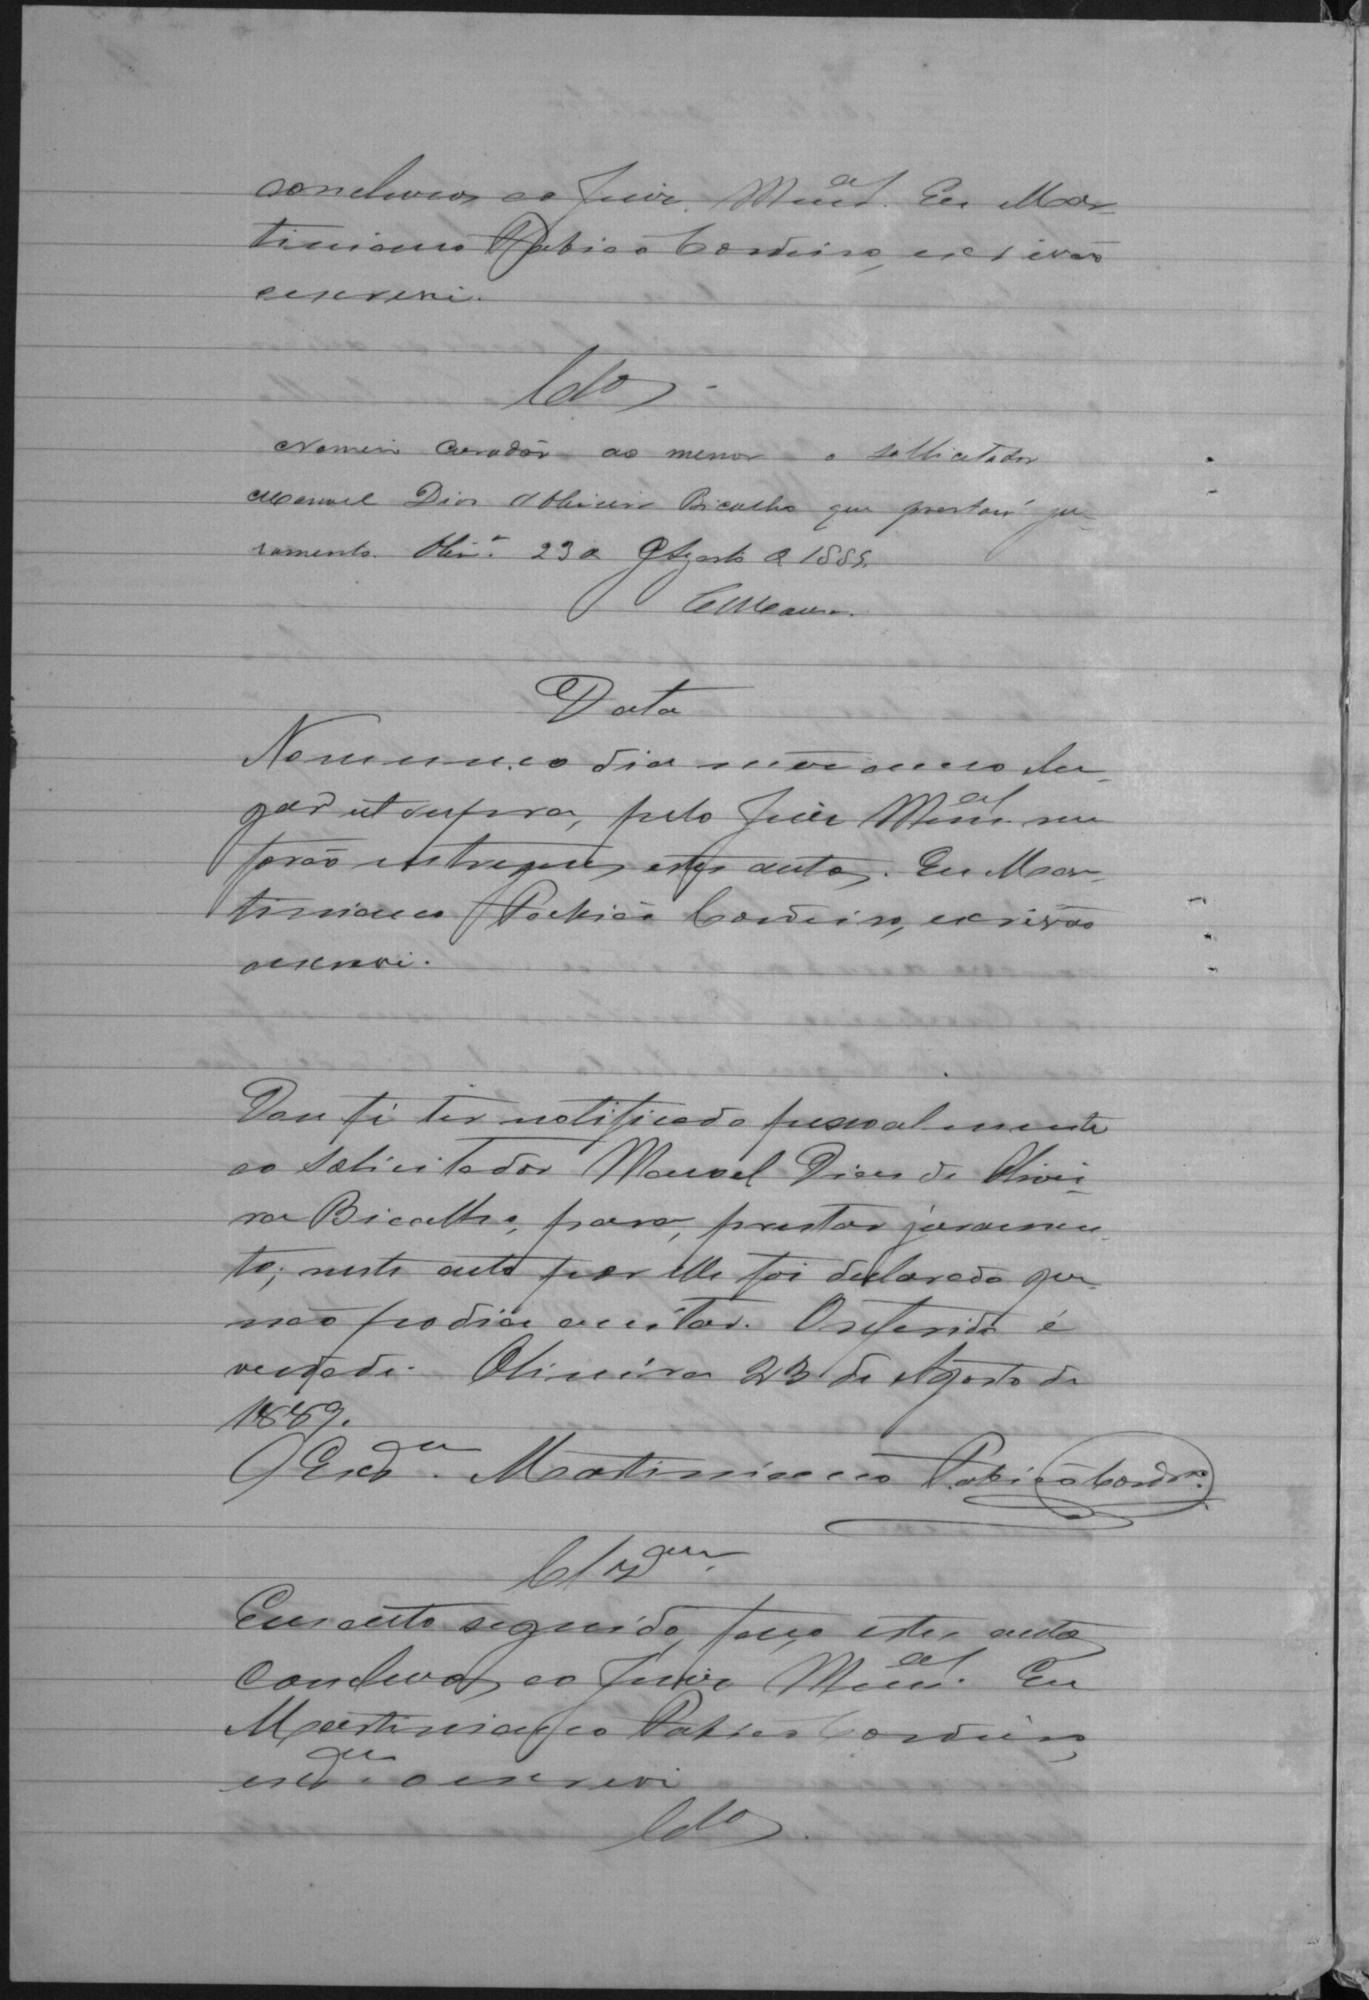 conclusos ao Juiz Mun.al Eu Mar-
tiniano Pabião Cordeiro, escrivão
escrevi.
Cl.os
Nomeio Curadôr ao menor o sollicitador
Manoel Dias d'Oliveira Bicalho que prestará ju-
ramento. Oliv.a 23 de Agosto de 1889.
Data
No mesmo dia mez anno e lu-
gar ut supra, pelo Juiz Mun.al me
forão entregues estes autos. Eu Mar-
tiniano Pabião Cordeiro, escrivão
o escrevi.
Dou fé ter notificado pessoalmente
ao solicitador Manoel Dias de Olivei-
ra Bicalho, para, prestar juramen-
to; neste acto por elle foi declarado que
não podia acceitar. O referido é
verdade. Oliveira 23 de Agosto de
1889.
O Escr.am Martiniano Pabião Cord.ro
Cl.zam
Em acto seguido, faço estes autos
conclusos ao Juiz Mun.al Eu
Martiniano Pabião Cordeiro,
escr.am o escrevi
Cl.os